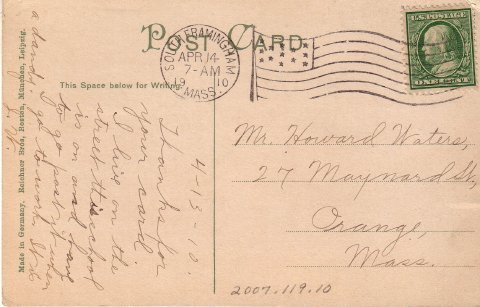 POST CARD
SOUTH FRAMINGHAM
APR 14
7-AM
1910
MASS.
U.S. POSTAGE
ONE CENT
This Space below for Writing.
4-13-10.
Thanks for
your card
I live on the
street this school
is on and have
to go past it when
I go to work. It is
a dandy.
Made in Germany. Reichner Bros, Boston, München, Leipzig.
Mr. Howard Waters,
27 Maynard St,
Orange,
Mass.
2007.119.10